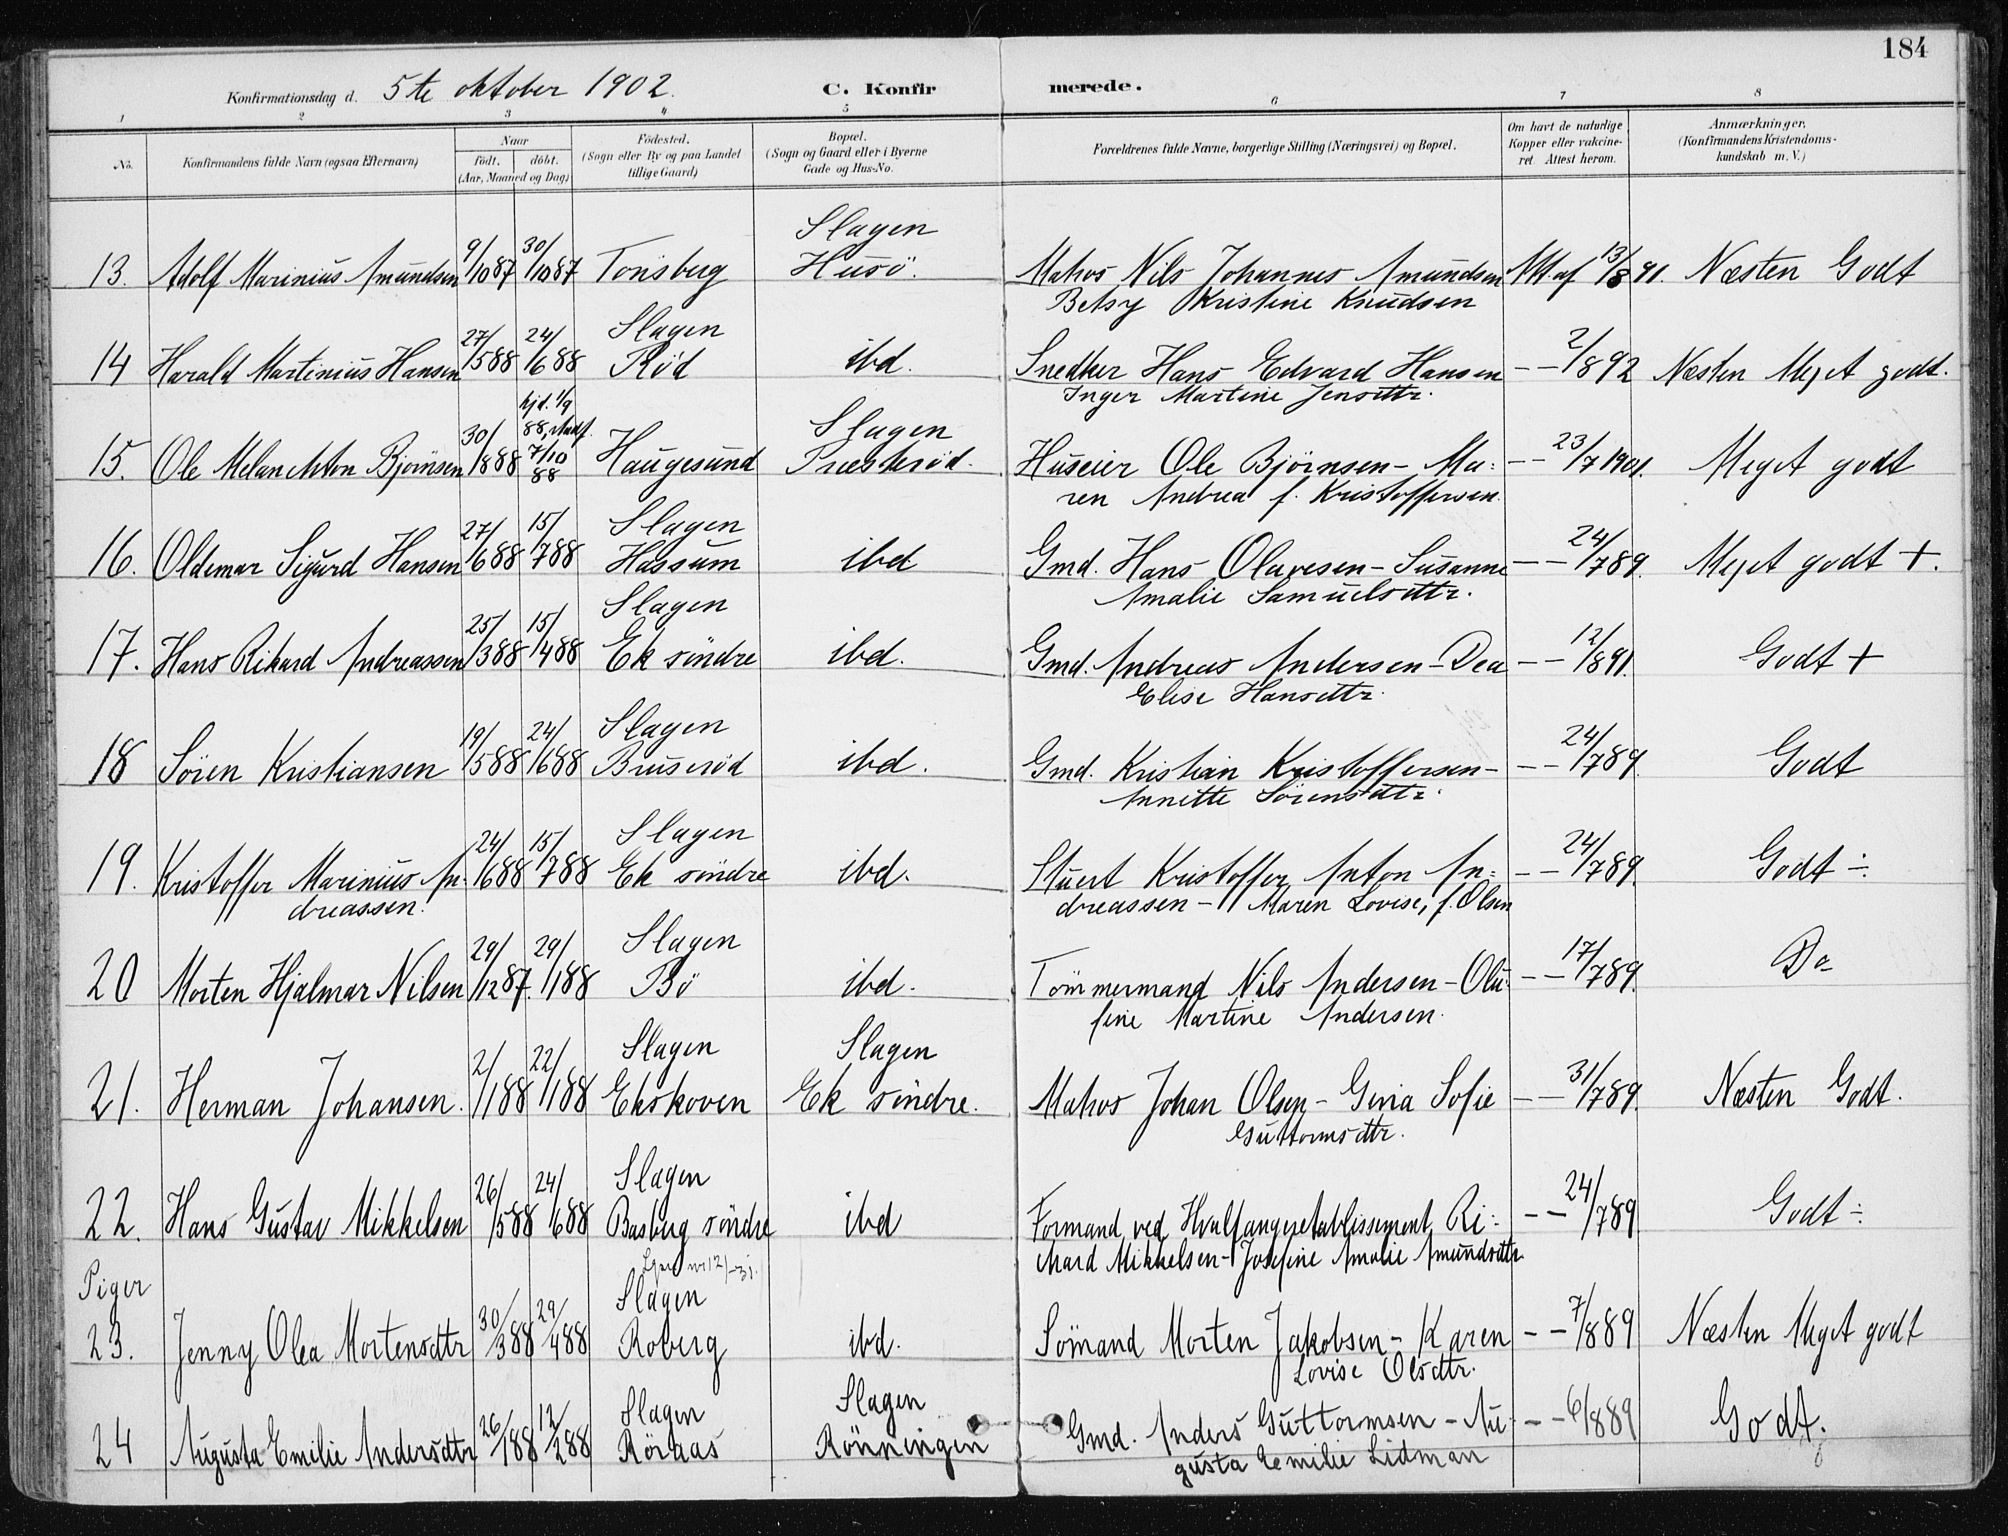 184
Konfirmationsdag d. 5te oktober 1902.
C. Konfirmerede.
1 2 3 4 5 6 7 8
No. Konfirmandens fulde Navn (ogsaa Efternavn) Naar født. døbt. (Aar, Maaned og Dag) Fødested. (Sogn eller By og paa Landet tillige Gaard) Bopæl. (Sogn og Gaard eller i Byerne Gade og Hus-No. Forældrenes fulde Navne, borgerlige Stilling (Næringsvei) og Bopæl. Om havt de naturlige Kopper eller vakcineret. Attest herom. Anmærkninger. (Konfirmandens Kristendomskundskab m. V.)
Slagen
13. Adolf Marinius Amundsen 9/10 87 30/10 87 Tønsberg Husö. Matros Nils Johannes Amundsen Att. af 13/8 91. Næsten Godt
Betsy Kristine Knudsen
Slagen
14 Harald Martinius Hansen 27/5 88 24/6 88 Rød ibd. Snedker Hans Edvard Hansen – – 2/8 92 Næsten Meget godt.
Inger Martine Jensdttr.
hjd. 1/9 88, stadf. Slagen
15. Ole Melanchton Bjørnsen 30/8 88 7/10 88 Haugesund Presterød. Huseier Ole Bjørnsen – Ma: – – 23/7 1901. Meget godt
ren Andrea f. Kristoffersen.
Slagen
16. Oldemar Sigurd Hansen 27/6 88 15/7 88 Hassum ibd Gmd. Hans Olavesen – Susanne – – 24/7 89. Meget godt +.
Amalie Samuelsdttr.
Slagen
17. Hans Rikard Andreassen 25/3 88 15/4 88 Ek söndre ibd. Gmd. Andreas Andersen – Dea – – 12/8 91. Godt +
Elise Hansdttr.
Slagen
18 Søren Kristiansen 19/5 88 24/6 88 Bruserød ibd. Gmd. Kristian Kristoffersen – – – 24/7 89. Godt
Annette Sörensdttr.
Slagen
19. Kristoffer Marinius An- 24/6 88 15/7 88 Ek söndre ibd. Stuert Kristoffer Anton An: – – 24/7 89. Godt ÷
dreassen. dreassen – Maren Lovise, f. Olsen
Slagen
20 Morten Hjalmar Nilsen 29/12 87. 29/1 88 Bö ibd. Tömmermand Nils Andersen – Olu: – – 17/7 89. Do
fine Martine Andersen.
Slagen Slagen
21. Herman Johansen. 2/1 88 22/1 88 Ekskoven Ek söndre. Matros Johan Olsen – Gina Sofie – – 31/7 89. Næsten Godt.
Guttormsdttr.
Slagen
22. Hans Gustav Mikkelsen 26/5 88 24/6 88 Basberg söndre ibd Formand ved Hvalfangeretablissement Ri: – – 24/7 89. Godt ÷
chard Mikkelsen – Josefine Amalie Amundsdttr
Piger Slagen
23. Jenny Olea Mortensdttr 30/3 88 29/4 88 Roberg ibd. Sömand Morten Jakobsen – Karen – – 7/8 89 Næsten Meget godt
Lovise Olsdttr.
Slagen Slagen
24 Augusta Emilie Andersdttr 26/1 88 12/2 88 Röraas Rönningen Gmd. Anders Guttormsen – Au- – – 6/8 89 Godt.
gusta Emilie Lidman